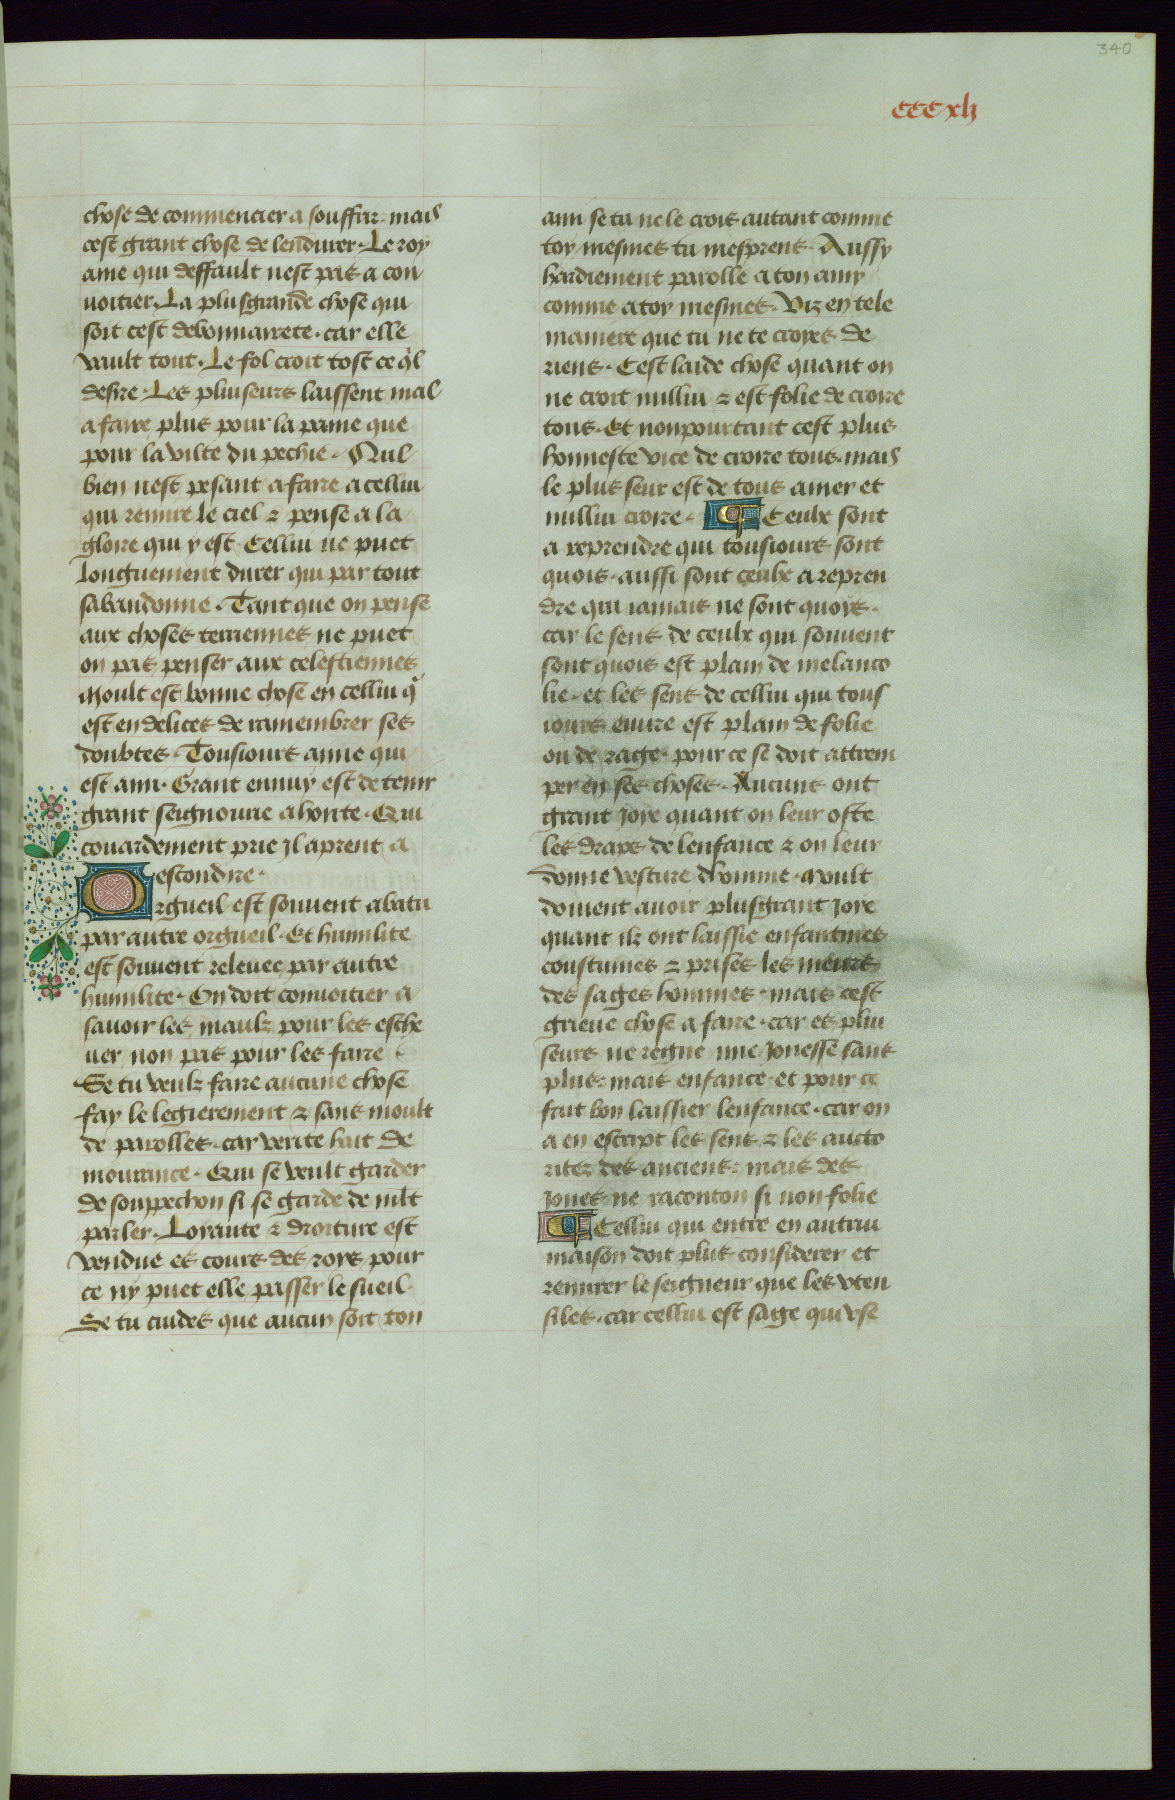 340
CCCxlj
chose de commencier a souffrir mais
cest grant chose de lendurer. Le roy
ame qui deffault nest pas a con
uoitier. La plusgrande chose qui
soit cest debonnairete. car elle
vault tout. Le fol croit tost ce ql
desire. Les pluiseurs laissent mal
a faire plus pour la paine que
pour la vilte du pechie. Nul
bien nest pesant a faire a cellui
qui remire le ciel ⁊ pense a la
gloire qui y est. Cellui ne puet
longuement durer qui par tout
sabandonne. Tant que on pense
aux choses terriennes ne puet
on pas penser aux celestiennes
Moult est bonne chose en cellui q̄
est en delices de ramembrer ses
doubtes. Tousiours aime qui
est ami. Grant ennuy est de tenir
grant seignourie a honte. Qui
couardement prie jl aprent a
escondire.
Orgueil est souuent abatu
par autre orgueil. Et humilite
est souuent releuee par autre
humilite. On doit conuoitier a
sauoir les maulz pour les esche
uer non pas pour les faire.
Se tu veulz faire aucune chose
fay le legierement ⁊ sans moult
de parolles. car verite hait de
mourance. Qui se veult garder
de souppechon si se garde de mlt
parler. Loraute ⁊ droiture est
vendue es cours des roys pour
ce ny puet elle passer le sueil.
Se tu cuides que aucun soit ton
ami se tu ne le crois autant comme
toy mesmes tu mesprens. Aussy
hardiement parolle a ton amy
comme a toy mesmes. Viz en tele
maniere que tu ne te croyes de
riens. Cest laide chose quant on
ne croit nullui ⁊ est folie de croire
tous. Et nonpourtant cest plus
honneste vice de croire tous. mais
le plus seur est de tous amer et
nullui croire. Ceulx sont
a reprendre qui tousiours sont
quois. aussi sont ceulx a repren
dre qui iamais ne sont quoys.
car le sens de ceulx qui souuent
sont quois est plain de melanco
lie. et les sens de cellui qui tous
iours euure est plain de folie
ou de rage. pour ce se doit attrem
per en ses choses. Aucuns ont
grant joye quant on leur oste
les draps de lenfance ⁊ on leur
donne vesture dhomme. moult
doiuent auoir plusgrant joye
quant ilz ont laissie enfantines
coustumes ⁊ prises les meurs
des sages hommes. mais cest
grieue chose a faire. car es plui
seurs ne regne mie jonesse sans
plus. mais enfance. et pour ce
fait bon laissier lenfance. car on
a en escript les sens ⁊ les aucto
ritez des anciens. mais des
jones ne raconton si non folie
Cellui qui entre en autrui
maison doit plus considerer et
remirer le seigneur que les vten
siles. car cellui est sage qui vse